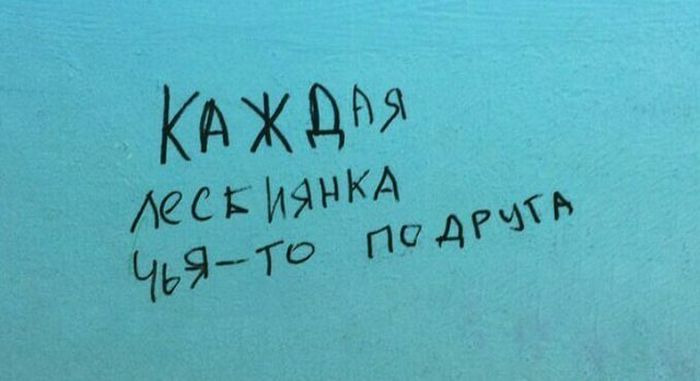 КАЖДАЯ
ЛЕСБИЯНКА
ЧЬЯ-ТО ПОДРУГА